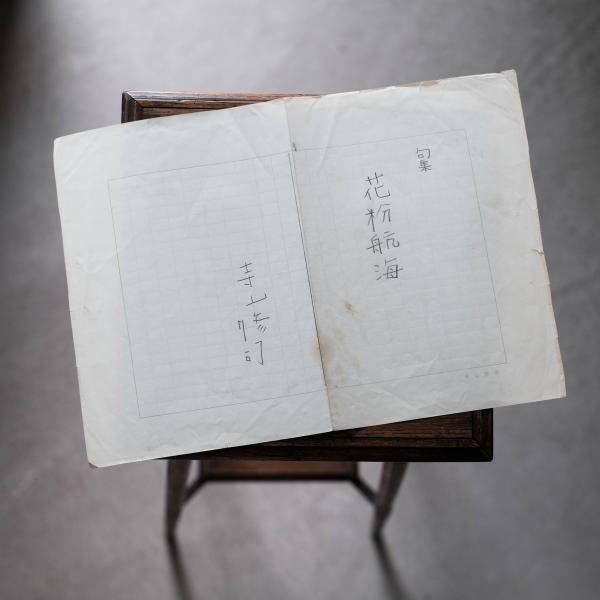 句集
花粉航海
寺山修司